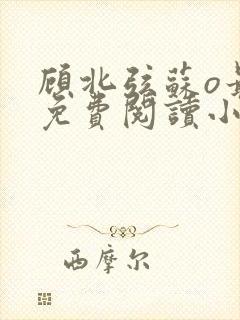 顾北弦蘇o
免費閱讀小
西摩尔